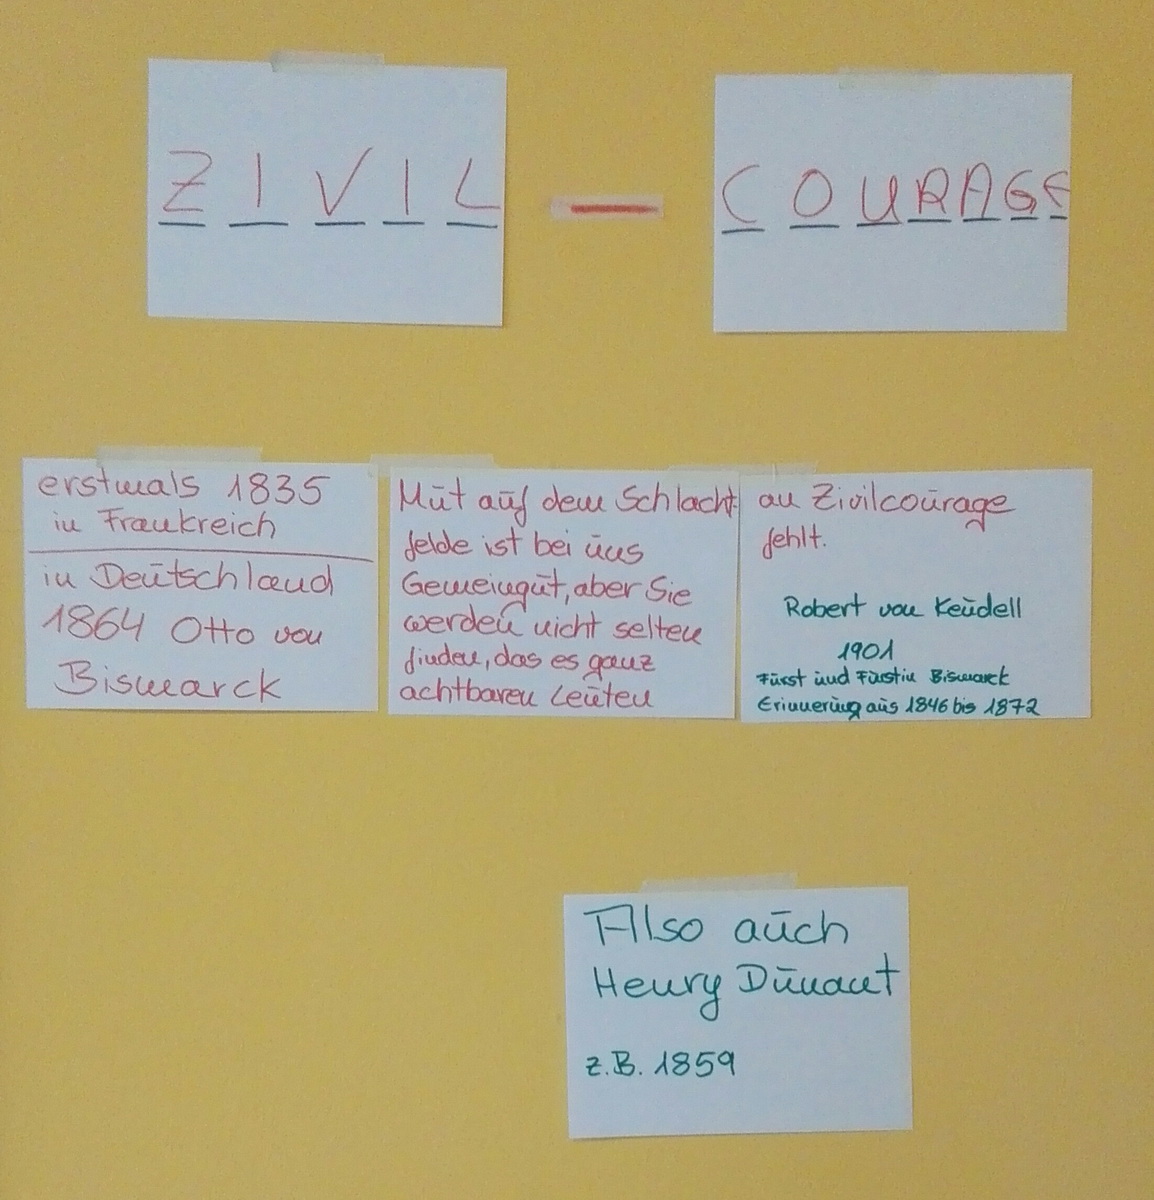 ZIVIL - COURAGE
erstmals 1835
in Frankreich
in Deutschland
1864 Otto von
Bismarck
Mut auf dem Schlacht-
felde ist bei uns
Gemeingut, aber Sie
werden nicht selten
finden, das es ganz
achtbaren Leuten
an Zivilcourage
fehlt.
Robert von Keudell
1901
Fürst und Fürstin Bismarck
Erinnerung aus 1846 bis 1872
Also auch
Henry Dunant
z.B. 1859